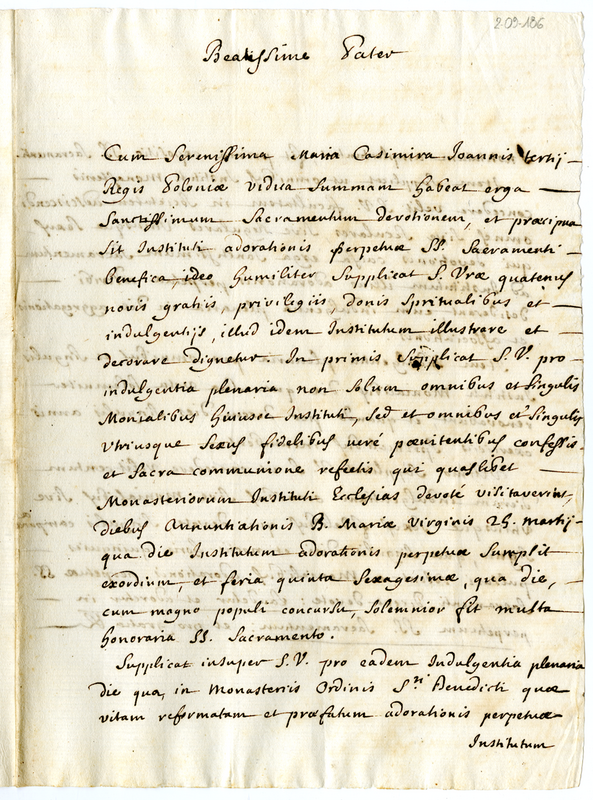 2-09-186
Beatissime Pater
Cum Serenissima Maria Casimira Joannis tertij
Regis Poloniæ vidua summam habeat erga
Sanctissimum Sacramentum devotionem, et præcipua
sit Instituti adorationis perpetuæ SS. Sacramenti
benefica, ideo humiliter supplicat S. Vræ quatenus
novis gratiis, privilegiis, donis spritualibus et
indulgentijs, illud idem Institutum illustrare et
decorare dignetur. In primis supplicat S. V. pro
indulgentia plenaria non solum omnibus et singulis
Monialibus hujusce Instituti, sed et omnibus et singulis
utriusque sexus fidelibus veré pœnitentibus confessis
et sacra communione refectis qui quaslibet
Monasteriorum Instituti Ecclesias devoté visitaverint
diebus Annuntiationis B. Mariæ virginis 25. martij
qua die Institutum adorationis perpetuæ sumpsit
exordium, et feria quinta sexagesimæ, qua die,
cum magno populi concursu, solemnior fit multa
honoraria SS. Sacramento.
Supplicat insuper S. V. pro eadem Indulgentia plenaria
die qua, in Monasteriis Ordinis Sti Benedicti quæ
vitam reformatam et præfatum adorationis perpetuæ
Institutum